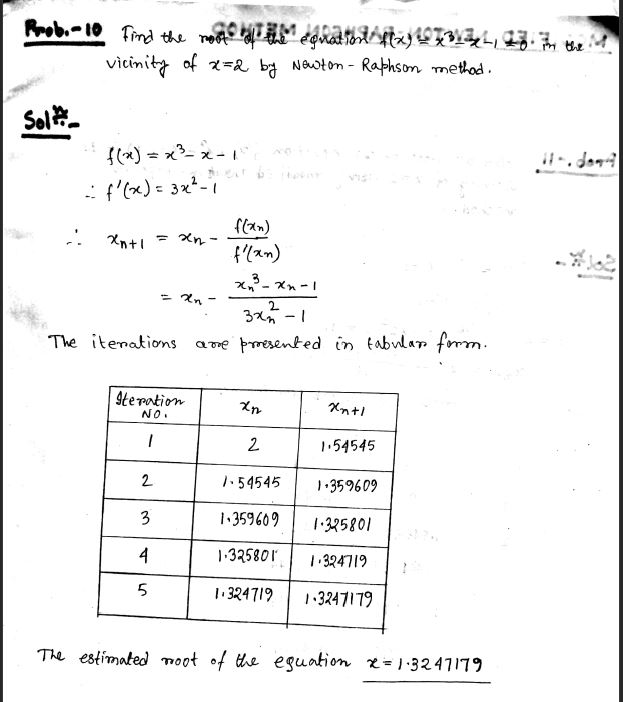 Prob.-10 Find the root of the equation f(x) = x³-x-1 = 0. in the
vicinity of x=2 by Newton-Raphson method.
Solⁿ:-
f(x) = x³-x-1
∴ f'(x) = 3x²-1
∴ xₙ₊₁ = xₙ - f(xₙ)/f'(xₙ)
= xₙ - (xₙ³-xₙ-1)/(3xₙ²-1)
The iterations are presented in tabular form.
Iteration NO. xₙ xₙ₊₁
1 2 1.54545
2 1.54545 1.359609
3 1.359609 1.325801
4 1.325801 1.324719
5 1.324719 1.3247179
The estimated root of the equation x = 1.3247179